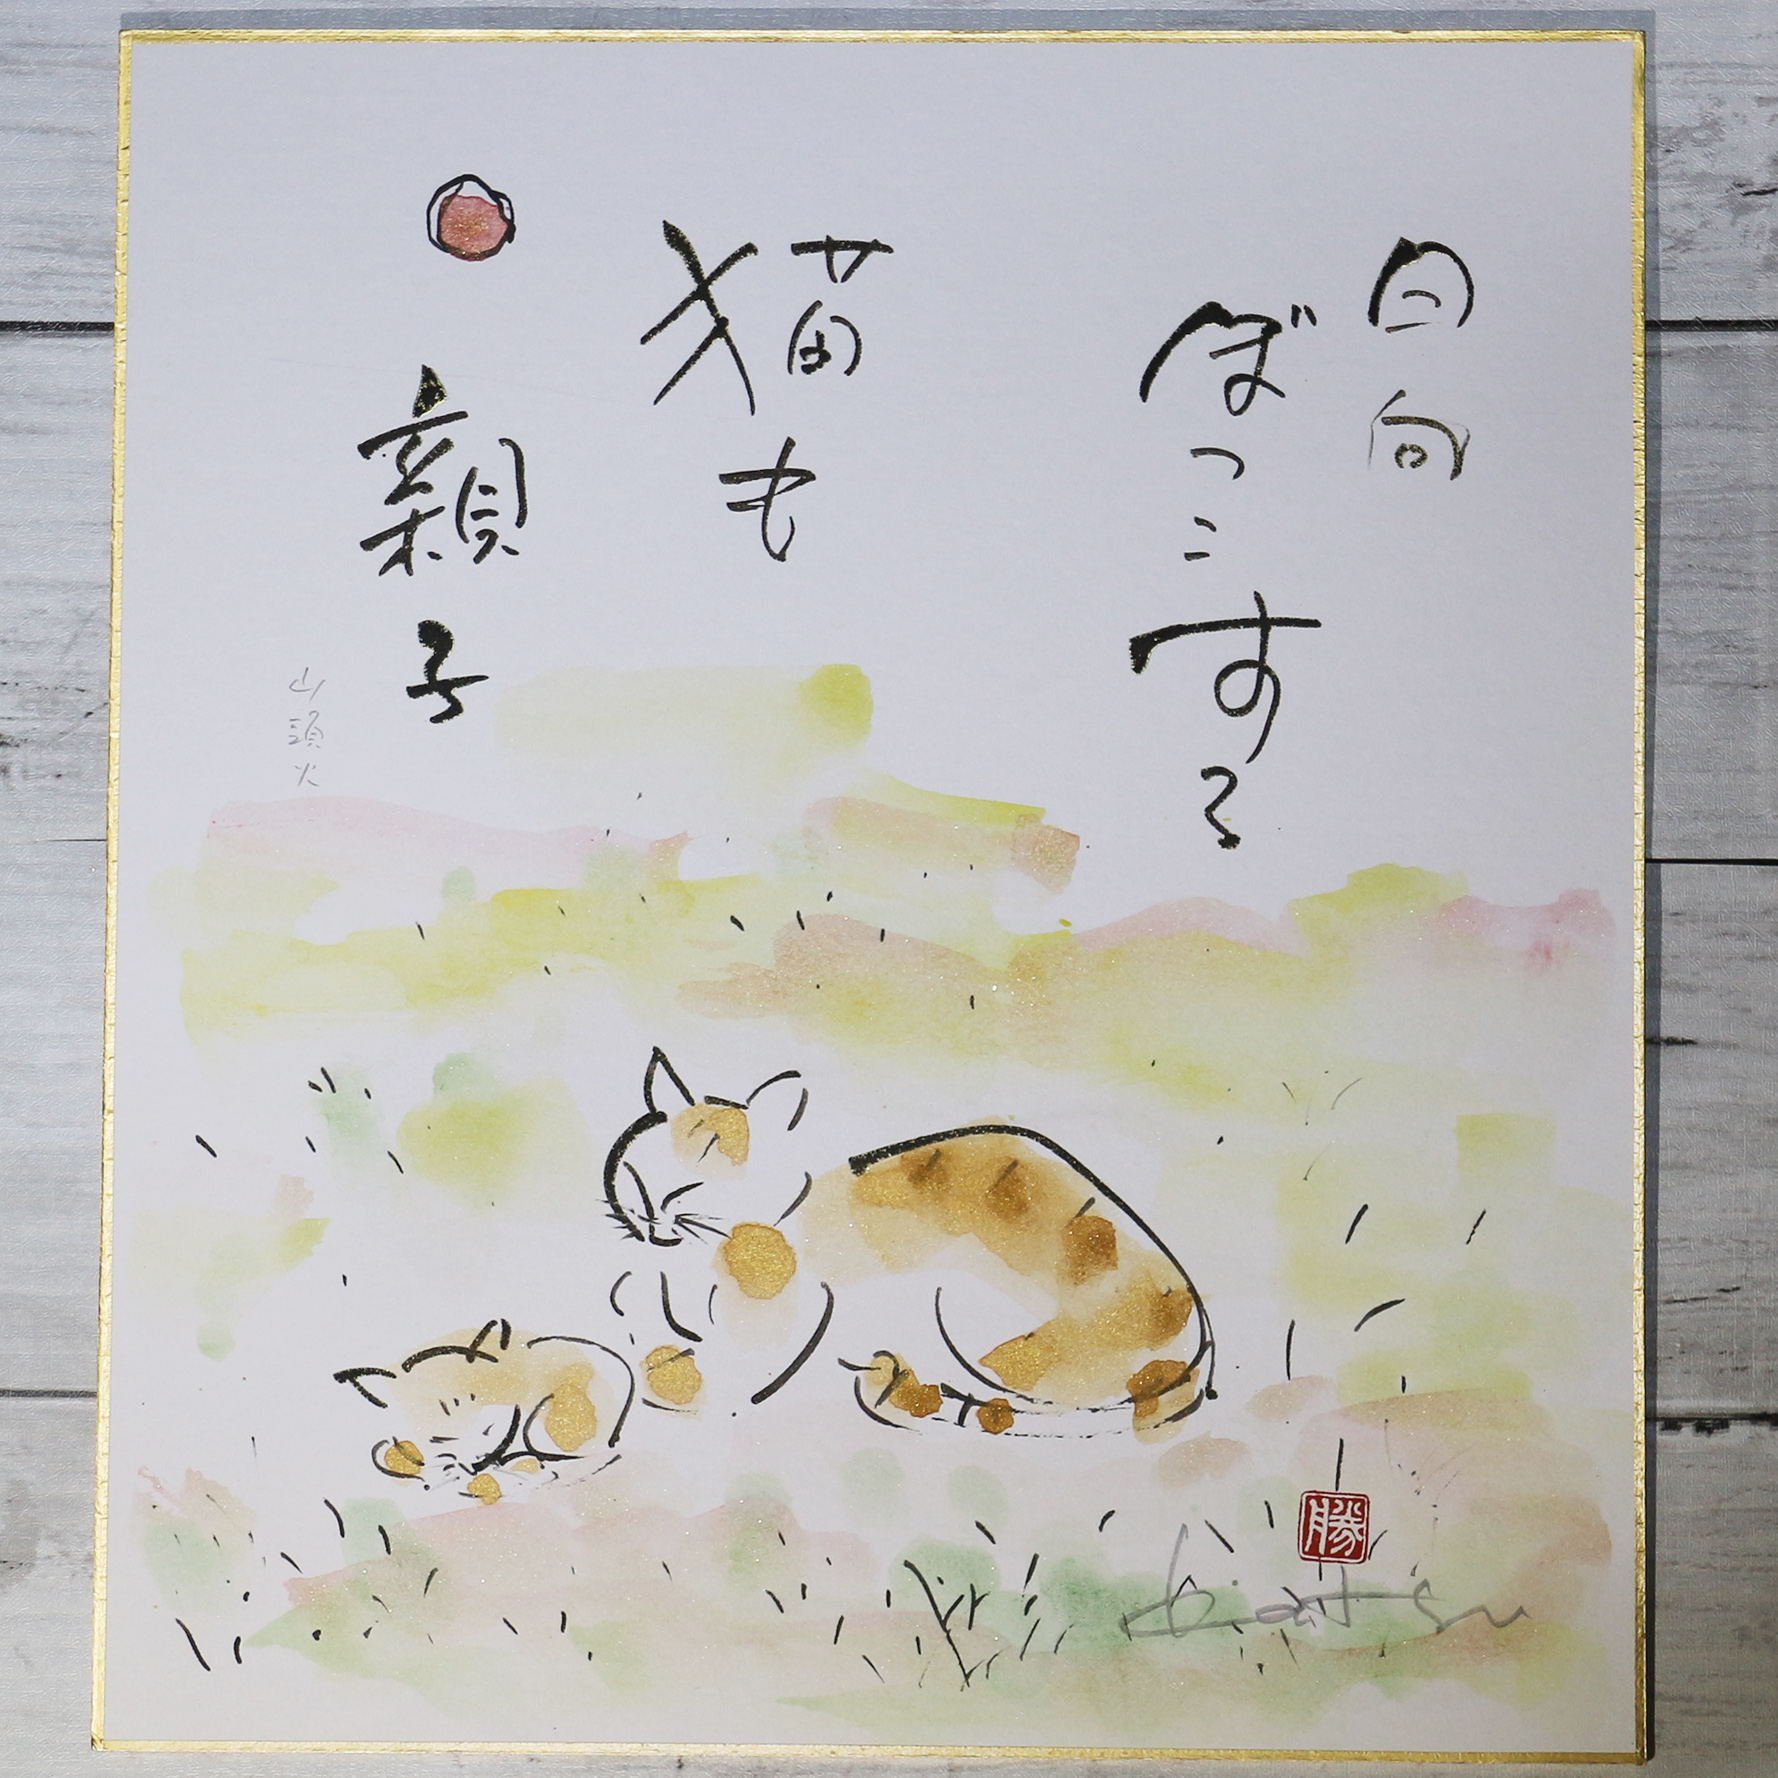 日向
ぼっこする
猫も
親子
山頭火
勝
Katsu